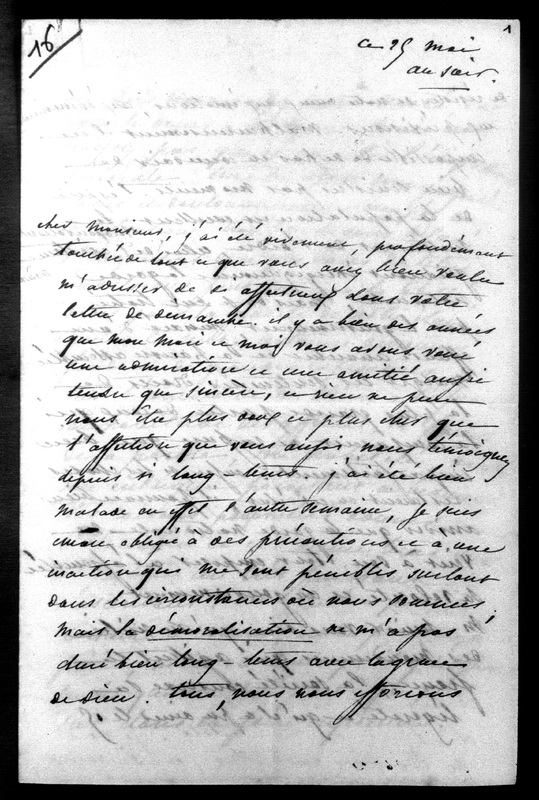 16
1
ce 25 mai
au soir.
cher Monsieur, j'ai été vivement, profondément
touchée de tout ce que vous avez bien voulu
m'adresser de si affectueux dans votre
lettre de dimanche. il y a bien des années
que mon mari et moi vous avons voué
une admiration et une amitié aussi
tendre que sincère, et rien ne peut
nous être plus doux et plus cher que
l'affection que vous aussi nous témoignez
depuis si long-tems. j'ai été bien
malade en effet l'autre semaine, je suis
encore obligée à des précautions et à une
inaction qui me sont pénibles surtout
dans les circonstances où nous sommes,
Mais la démoralisation ne m'a pas
duré bien long-tems avec la grace
de Dieu. tous, nous nous efforcons